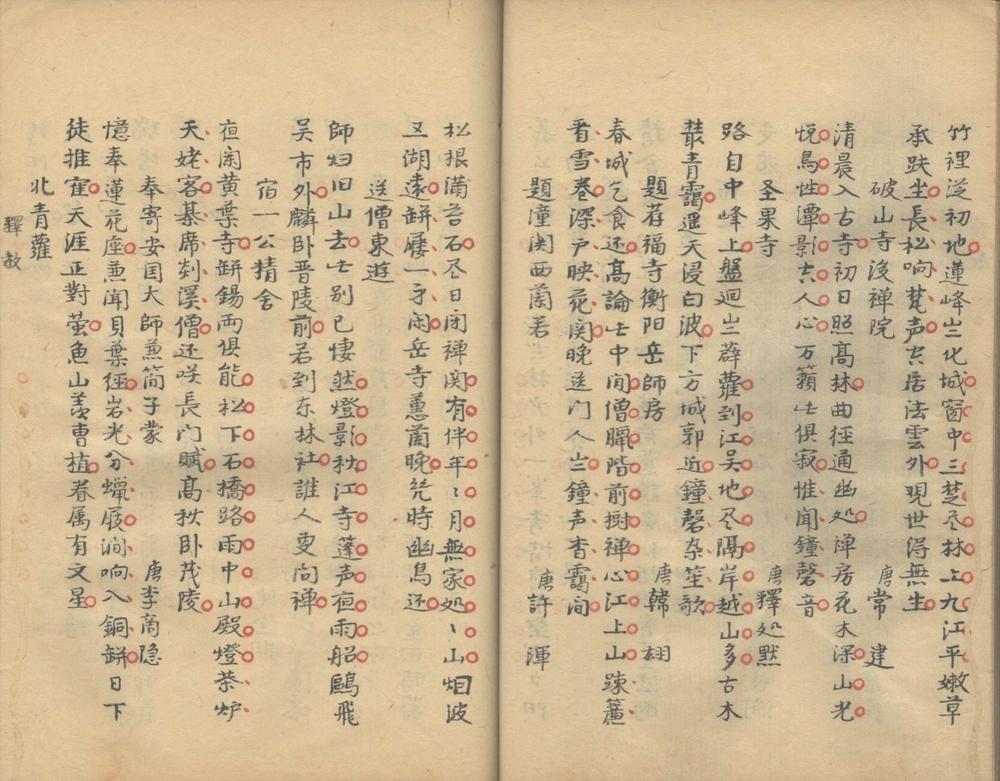 竹裡従初地蓮峰出化城窗中三楚尽林上九江平嫩草
承趺坐長松响梵声空居法雲外現世得無生
破山寺後禅院 唐 常 建
清晨入古寺初日照髙林曲径通幽処禅房花木深山光
悦鳥性潭影空人心万籟此俱寂惟聞鐘磬音
圣果寺 唐釋処黙
路自中峰上盤迴出薜蘿到江吴地尽隔岸越山多古木
叢青靄遥天浸白波下方城郭近鐘磬杂笙歌
題荐福寺衡阳岳師房 唐韓 翃
春城乞食还髙論此中閒僧臘階前樹禅心江上山踈簾
看雪卷深户映花関晚送门人出鐘声杳靄间
題潼関西蘭若 唐許 渾
松根满苔石尽日闭禅関有伴年〻月無家処〻山烟波
五湖遠缾屦一身闲岳寺蕙蘭晚幾時幽鳥还
送僧東遊
師归旧山去此别已悽然燈影秋江寺蓬声夜雨船鷗飛
吴市外麟卧晋陵前若到东林社誰人更问禅
宿一公精舍
夜闻黄葉寺缾錫两俱能松下石橋路雨中山殿燈茶炉
天姥客棊席剡溪僧还咲長门賦髙秋卧茂陵
奉寄安国大師兼简子蒙 唐李商隐
憶奉蓮花座兼聞貝葉徑岩光分蠟屐澗响入銅缾日下
徒推隺天涯正對萤魚山羡曹植眷属有文星
北青蘿
釋教